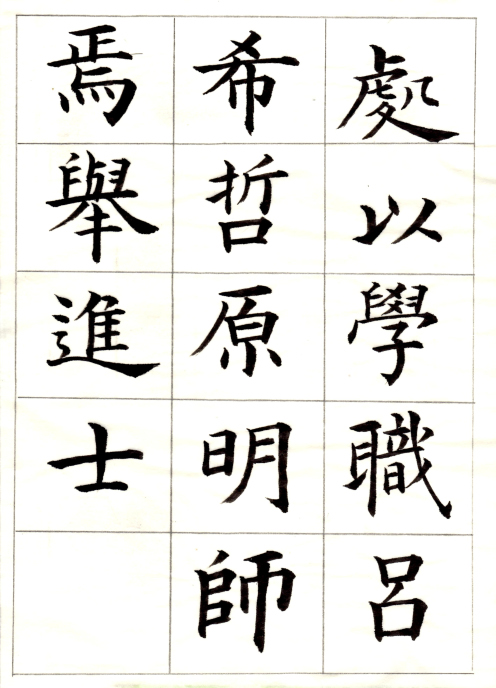 處以學職呂
希哲原明師
焉舉進士